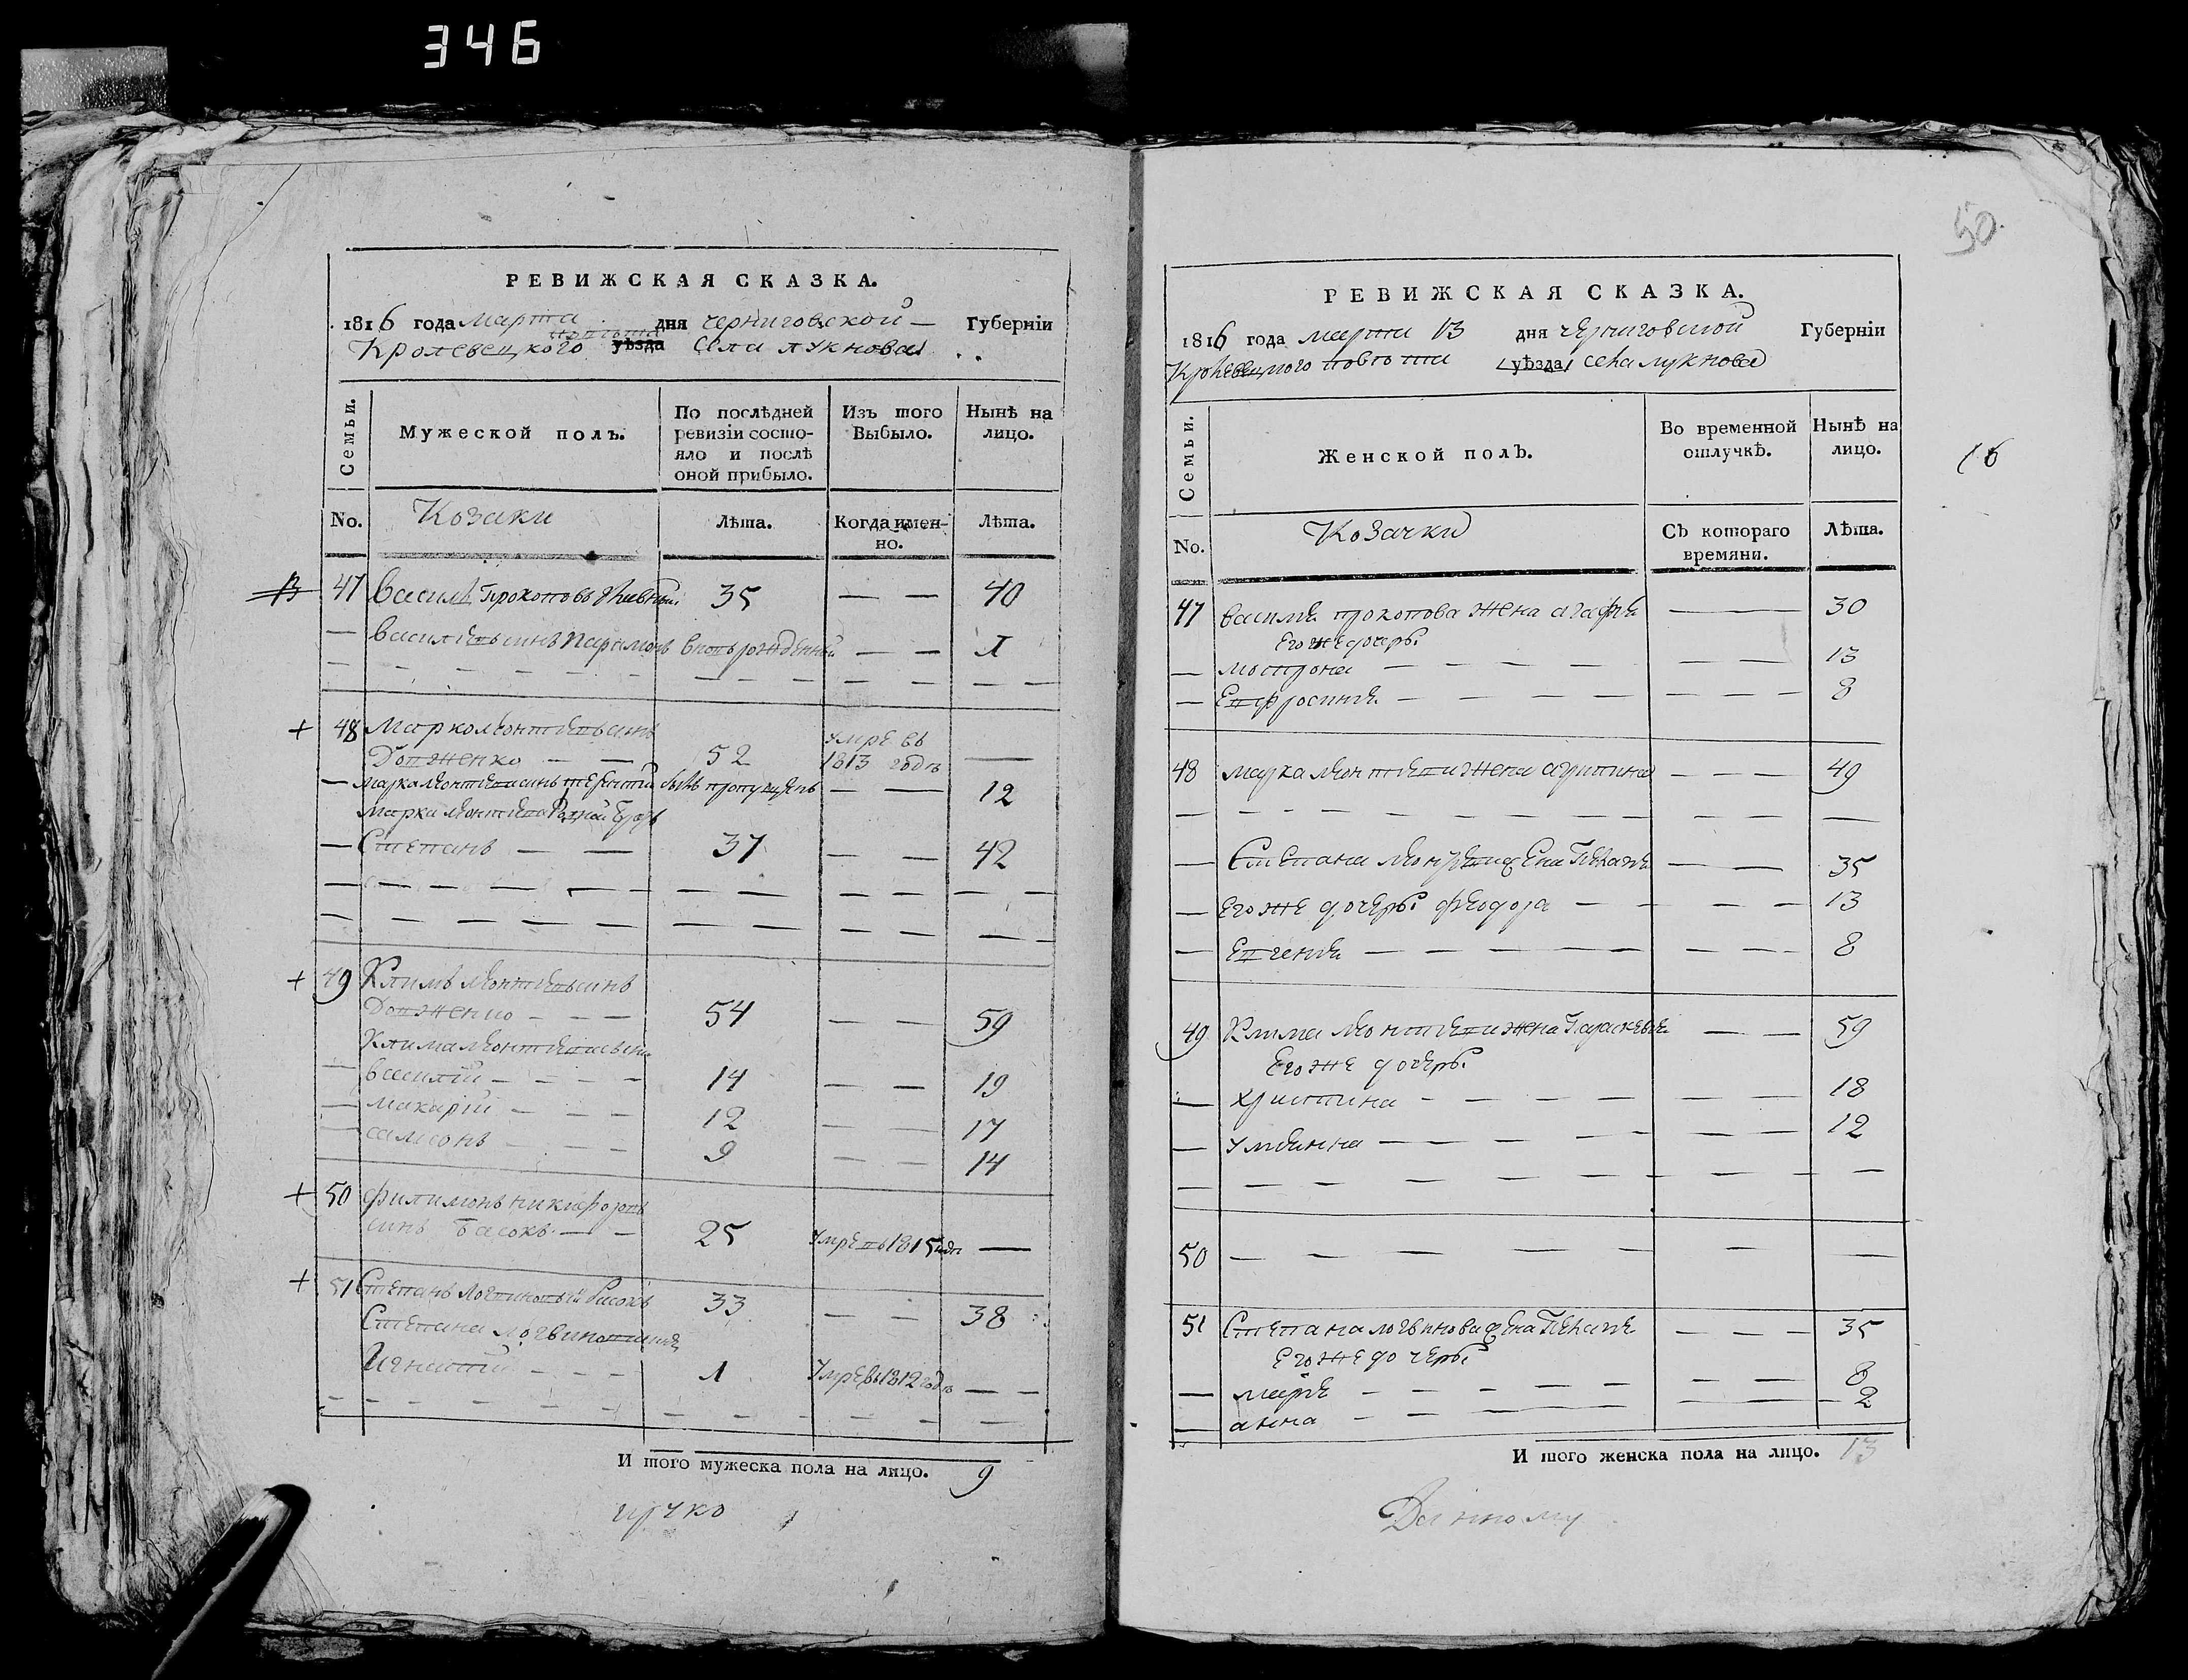 346
РЕВИЖСКАЯ СКАЗКА.
1816 года марта дня черниговской Губерніи
Кролевецкого уѣзда села лукнова
Семьи.
Мужеской полъ.
По послѣдней ревизіи состояло и послѣ оной прибыло.
Изъ того Выбыло.
Нынѣ на лицо.
No. Козаки Лѣта. Когда имен-но. Лѣта.
47 василѣ Прокоповъ 35 — — 40
— василѣевъ синъ парамонъ вновъ рожденный — — 1
+ 48 Марко леонтѣевъ синъ
Долженко — — 52 умре въ 1813 годѣ —
— марка леонтѣева синъ терентий билъ пропущенъ — — 12
марка леонтѣева родной братъ
— Степанъ — — 37 — — 42
+ 49 Климъ леонтѣевъ синъ
Долженко — — — 54 — — 59
Клима леонтѣева сини
— василий — — — — 14 — — 19
— макарий — — — 12 — — 17
— самсонъ — — — 9 — — 14
+ 50 филимонъ никифоровъ
синъ басокъ — — 25 умре въ 1815 годѣ —
+ 51 Степанъ логвиновъ басокъ 33 — — 38
Степана логвинова синъ
Игнатий — — — 1 умре въ 1812 годѣ — —
И того мужеска пола на лицо. 9
50.
РЕВИЖСКАЯ СКАЗКА.
1816 года марта 13 дня черниговской Губерніи
Кролевецкого повѣта уѣзда села лукнова
Семьи.
Женской полъ.
Во временной отлучкѣ.
Нынѣ на лицо.
16
No. Козачки Съ котораго времяни. Лѣта.
47 василѣя прокопова жена агафия — — 30
Его же дочери
— мотрона — — — — — — 13
— Евфросиния — — — — — — — 8
48 марка леонтѣева жена агрипина — — — 49
— Степана леонтѣева жена Пелагия — — 35
— Его же дочери феодора — — — — 13
— Евгения — — — — — — — 8
49 Клима леонтѣева жена Параскевия — — 59
Его же дочери
— христина — — — — — — — 18
— улияна — — — — — — — 12
50 — — — — — — —
51 Степана логвинова жена Пелагия — — — 35
Его же дочери
— мария — — — — — — — 8
— анна — — — — — — — 2
И того женска пола на лицо. 13